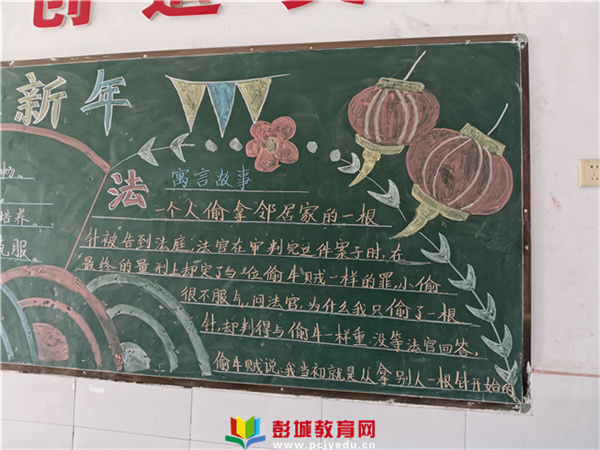 新年
物。
培养
克服
法
寓言故事
一个人偷拿邻居家的一根
针被告到法庭,法官在审判完这件案子时,在
最终的量刑上却定了与一位偷牛贼一样的罪,小偷
很不服气,问法官,为什么我只偷了一根
针,却判得与偷牛一样重,没等法官回答,
偷牛贼说:我当初就是从拿别人一根针开始的
彭城教育网
www.pcjyedu.cn